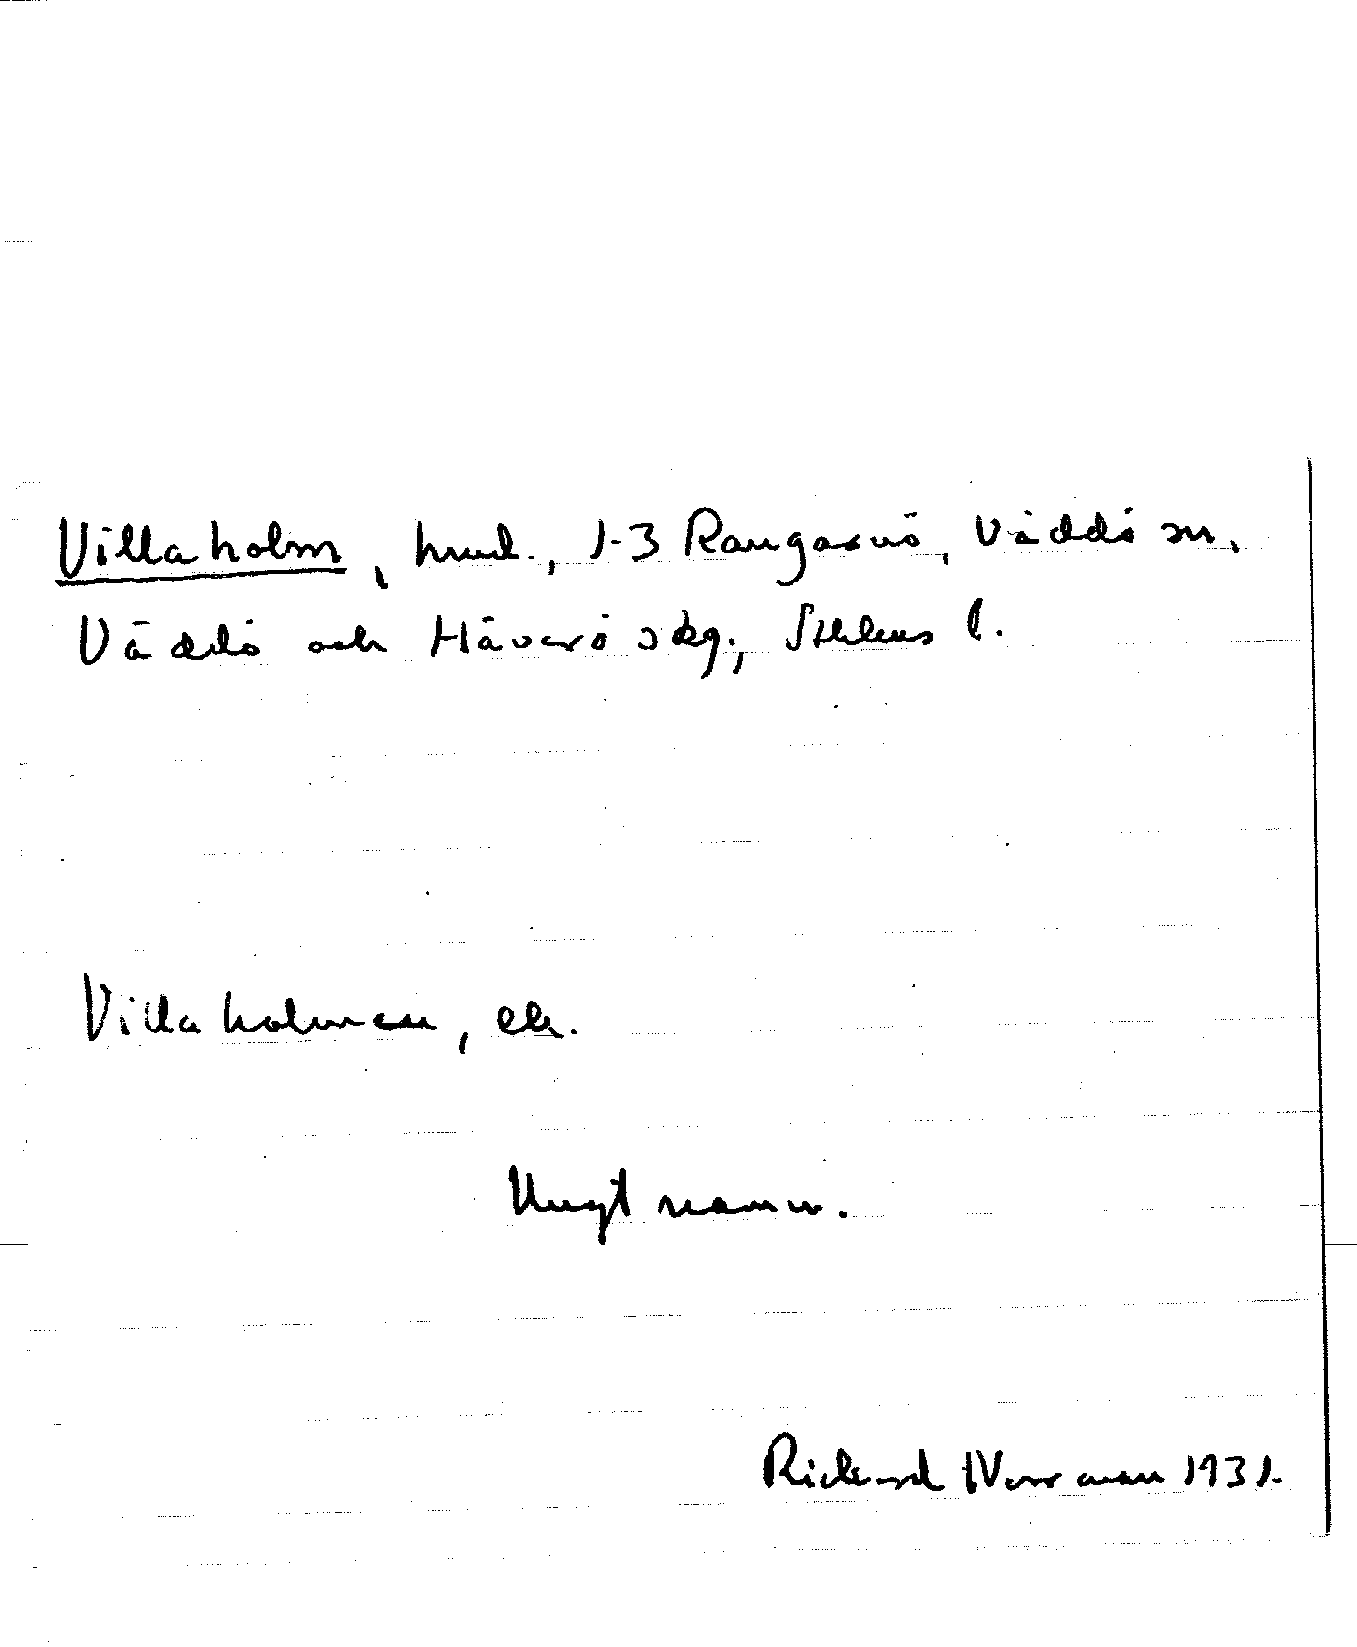 Villaholm, hmd., 1-3 Rangarnö, Väddö sn,
Väddö och Häverö skg., Sthlms l.
Villaholmen, ek.
Ungt namn.
Rickard Norman 1931.